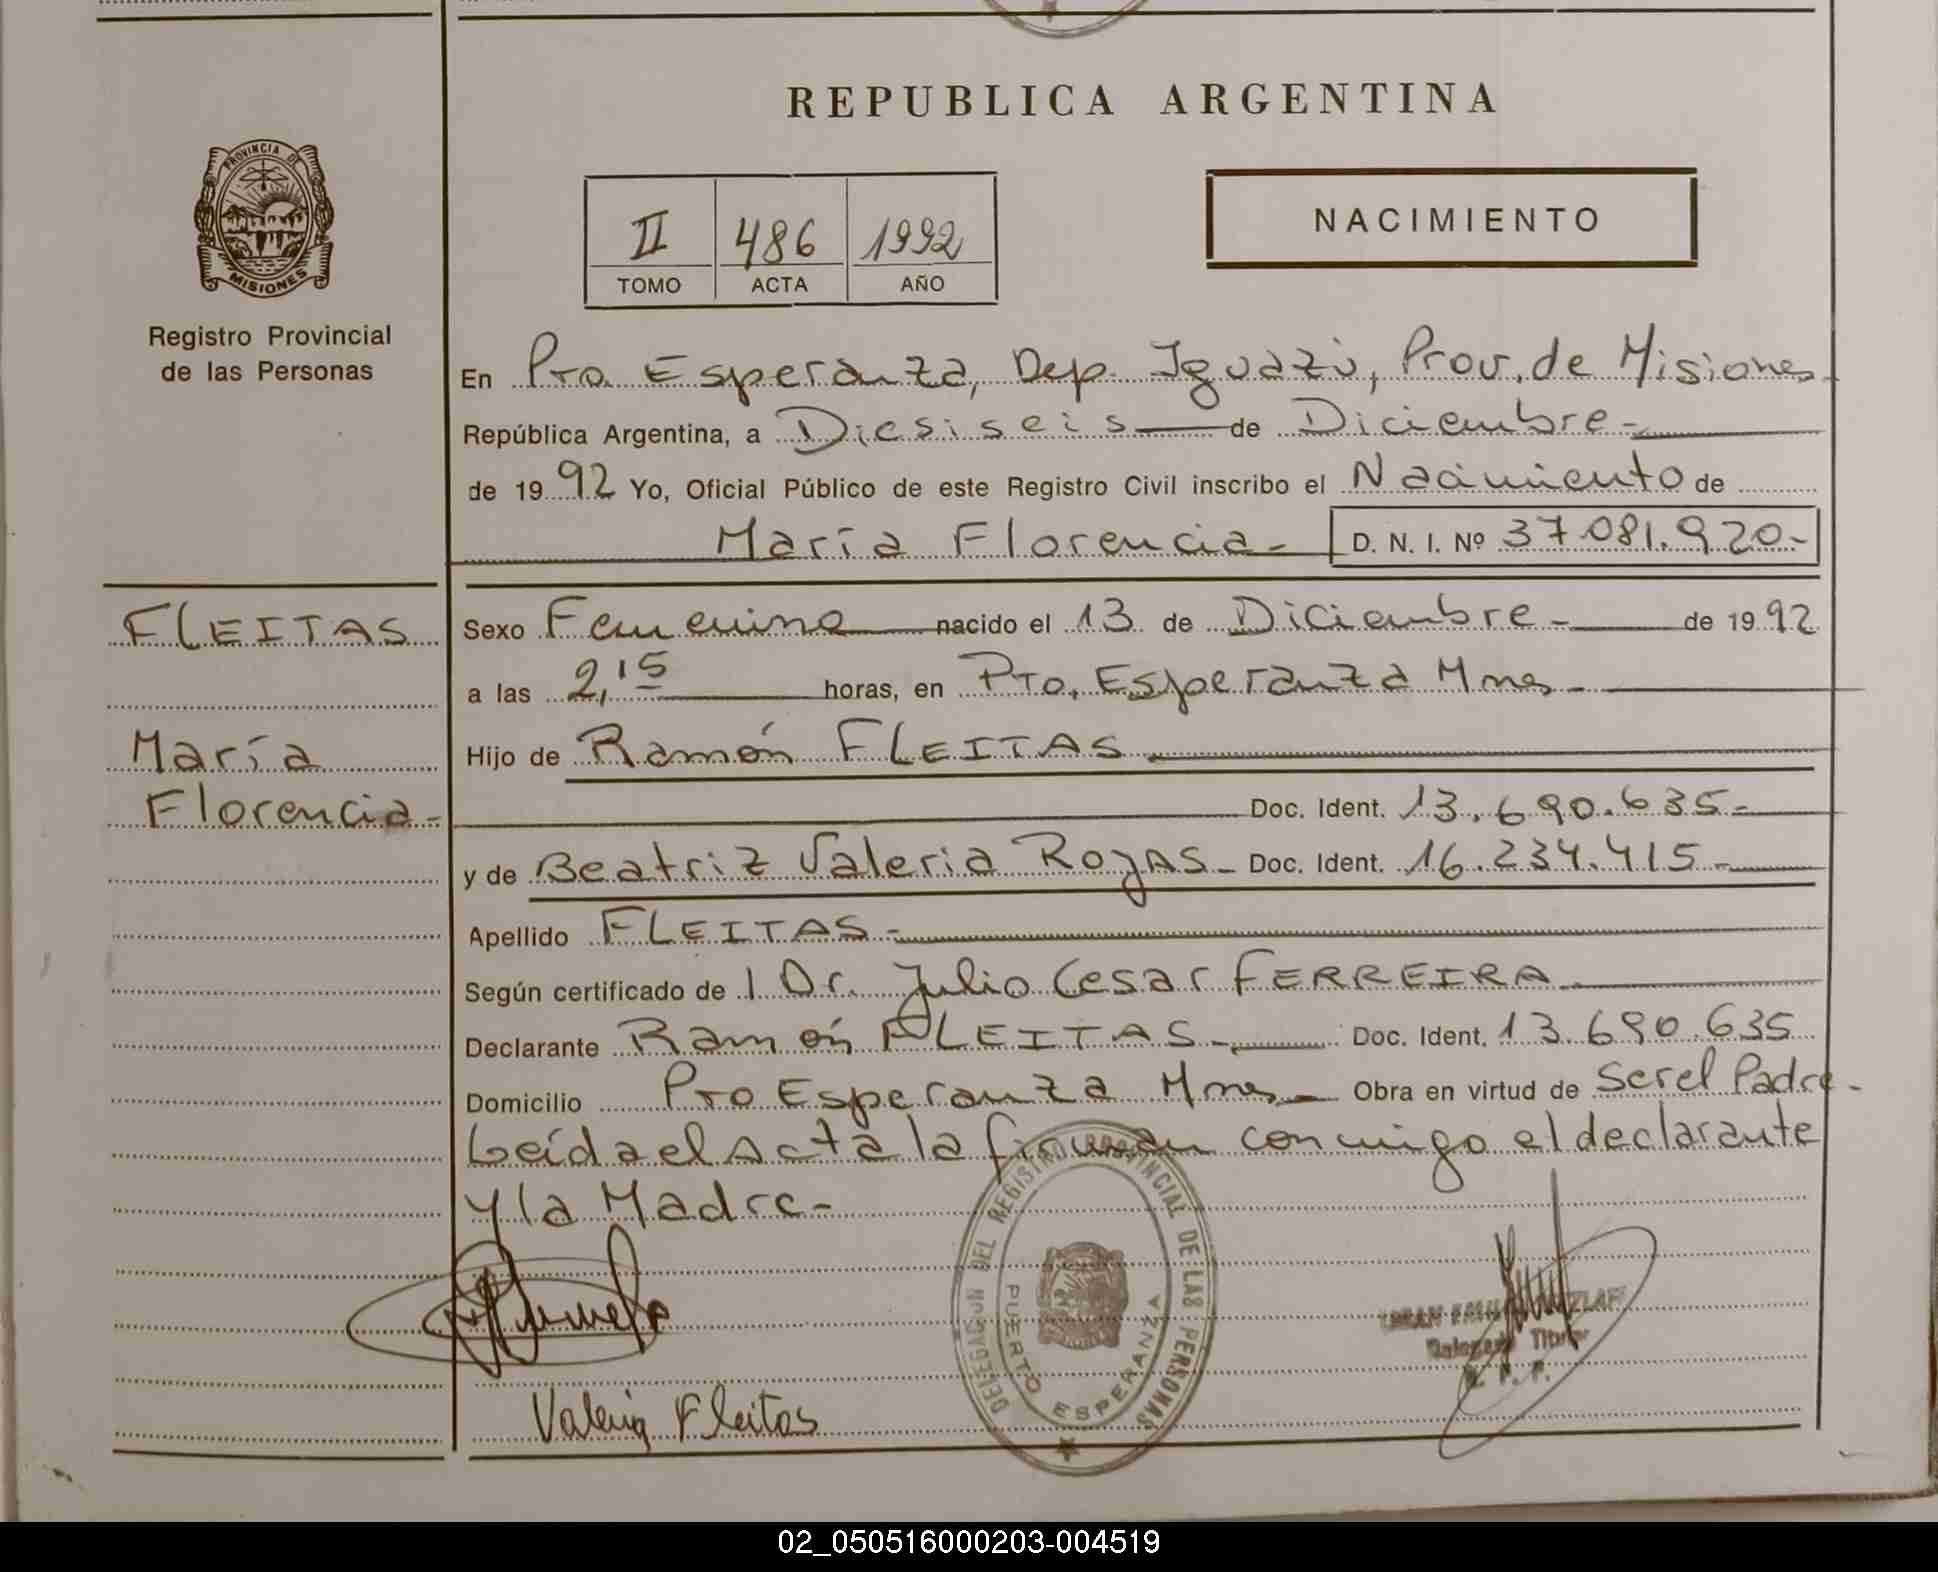 REPUBLICA ARGENTINA
PROVINCIA DE
MISIONES
Registro Provincial
de las Personas
II 486 1992
TOMO ACTA AÑO
NACIMIENTO
En Pto. Esperanza, Dep. Iguazú, Prov. de Misiones
República Argentina, a Diesiseis de Diciembre
de 1992 Yo, Oficial Público de este Registro Civil inscribo el Nacimiento de
María Florencia D. N. I. Nº 37.081.920.-
FLEITAS
María
Florencia-
Sexo Femenino nacido el 13 de Diciembre de 1992
a las 2,15 horas, en Pto. Esperanza Mnes
Hijo de Ramón FLEITAS
Doc. Ident. 13.690.635-
y de Beatriz Valeria Rojas- Doc. Ident. 16.234.415-
Apellido FLEITAS-
Según certificado de l Dr. Julio Cesar FERREIRA
Declarante Ramón FLEITAS- Doc. Ident. 13.690.635
Domicilio Pto Esperanza Mnes Obra en virtud de Ser el Padre-
Leída el Acta la firman conmigo el declarante
y la Madre-
DELEGACION DEL REGISTRO PROVINCIAL DE LAS PERSONAS
PUERTO ESPERANZA
Delegado Titular
Valeria Fleitas
02_050516000203-004519